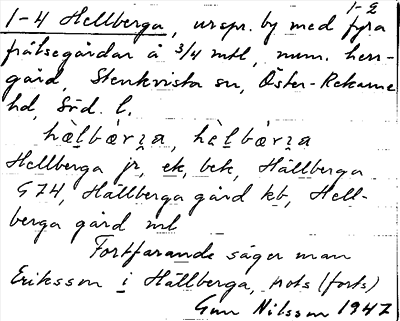 1-2
1-4 Hellberga, urspr. by med fyra
frälsegårdar à 3/4 mtl, num. herr-
gård, Stenkvista sn, Öster-Rekarne
hd, Söd. l.
hæ̀lbær̀ɜa, hèlbær̀ɜa
Hellberga jr, ek, bek, Hällberga
G74, Hällberga gård kb, Hell-
berga gård ml
Fortfarande säger man
Eriksson i Hällberga, nots (forts)
Gun Nilsson 1947